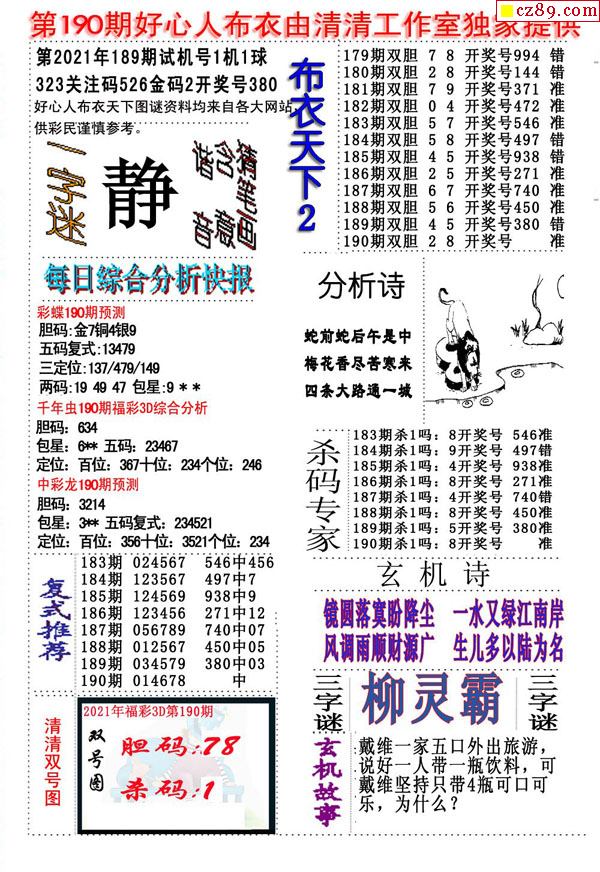 cz89.com
第190期好心人布衣由清清工作室独家提供
第2021年189期试机号1机1球
323关注码526金码2开奖号380
好心人布衣天下图谜资料均来自各大网站,
供彩民谨慎参考。
一字迷
静
谐音 含意 猜笔画
每日综合分析快报
彩蝶190期预测
胆码:金7铜4银9
五码复式:13479
三定位:137/479/149
两码:19 49 47 包星:9 * *
千年虫190期福彩3D综合分析
胆码: 634
包星: 6** 五码: 23467
定位: 百位: 367十位: 234个位: 246
中彩龙190期预测
胆码: 3214
包星: 3** 五码复式: 234521
定位: 百位: 356十位: 3521个位: 234
复式推荐
183期 024567 546中456
184期 123567 497中7
185期 124569 938中9
186期 123456 271中12
187期 056789 740中07
188期 012567 450中05
189期 034579 380中03
190期 014678 中
清清双号图
2021年福彩3D第190期
双号图
胆码:78
杀码:1
布衣天下2
179期双胆 7 8 开奖号994 错
180期双胆 2 8 开奖号144 错
181期双胆 7 9 开奖号371 准
182期双胆 0 4 开奖号472 准
183期双胆 5 7 开奖号546 准
184期双胆 5 8 开奖号497 错
185期双胆 4 5 开奖号938 错
186期双胆 2 5 开奖号271 准
187期双胆 6 7 开奖号740 准
188期双胆 5 6 开奖号450 准
189期双胆 4 5 开奖号380 错
190期双胆 2 8 开奖号 准
分析诗
蛇前蛇后午是中
梅花香尽苦寒来
四条大路通一城
杀码专家
183期杀1吗: 8开奖号 546准
184期杀1吗: 9开奖号 497错
185期杀1吗: 4开奖号 938准
186期杀1吗: 8开奖号 271准
187期杀1吗: 4开奖号 740错
188期杀1吗: 8开奖号 450准
189期杀1吗: 5开奖号 380准
190期杀1吗: 8开奖号 准
玄机诗
镜圆落寞盼降尘 一水又绿江南岸
风调雨顺财源广 生儿多以陆为名
三字谜
柳灵霸
三字谜
玄机故事
戴维一家五口外出旅游，
说好一人带一瓶饮料，可
戴维坚持只带4瓶可口可
乐，为什么？